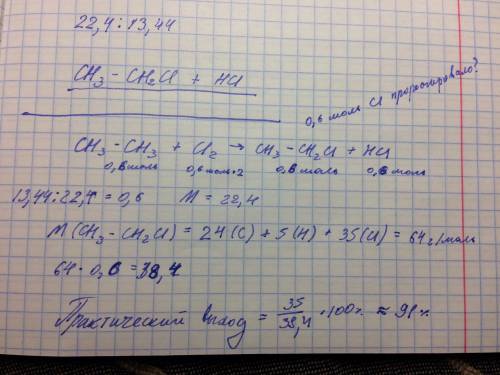 22,4 : 13,44
CH₃ - CH₂Cl + HCl
0,6 моль Cl прореагировало?
CH₃ - CH₃ + Cl₂ → CH₃ - CH₂Cl + HCl
0,6 моль 0,6 моль·2 0,6 моль 0,6 моль
13,44 : 22,4 = 0,6 M = 22,4
M(CH₃ - CH₂Cl) = 24(C) + 5(H) + 35(Cl) = 64 г/моль
64 · 0,6 = 38,4
Практический выход = 35/38,4 · 100% ≈ 91%